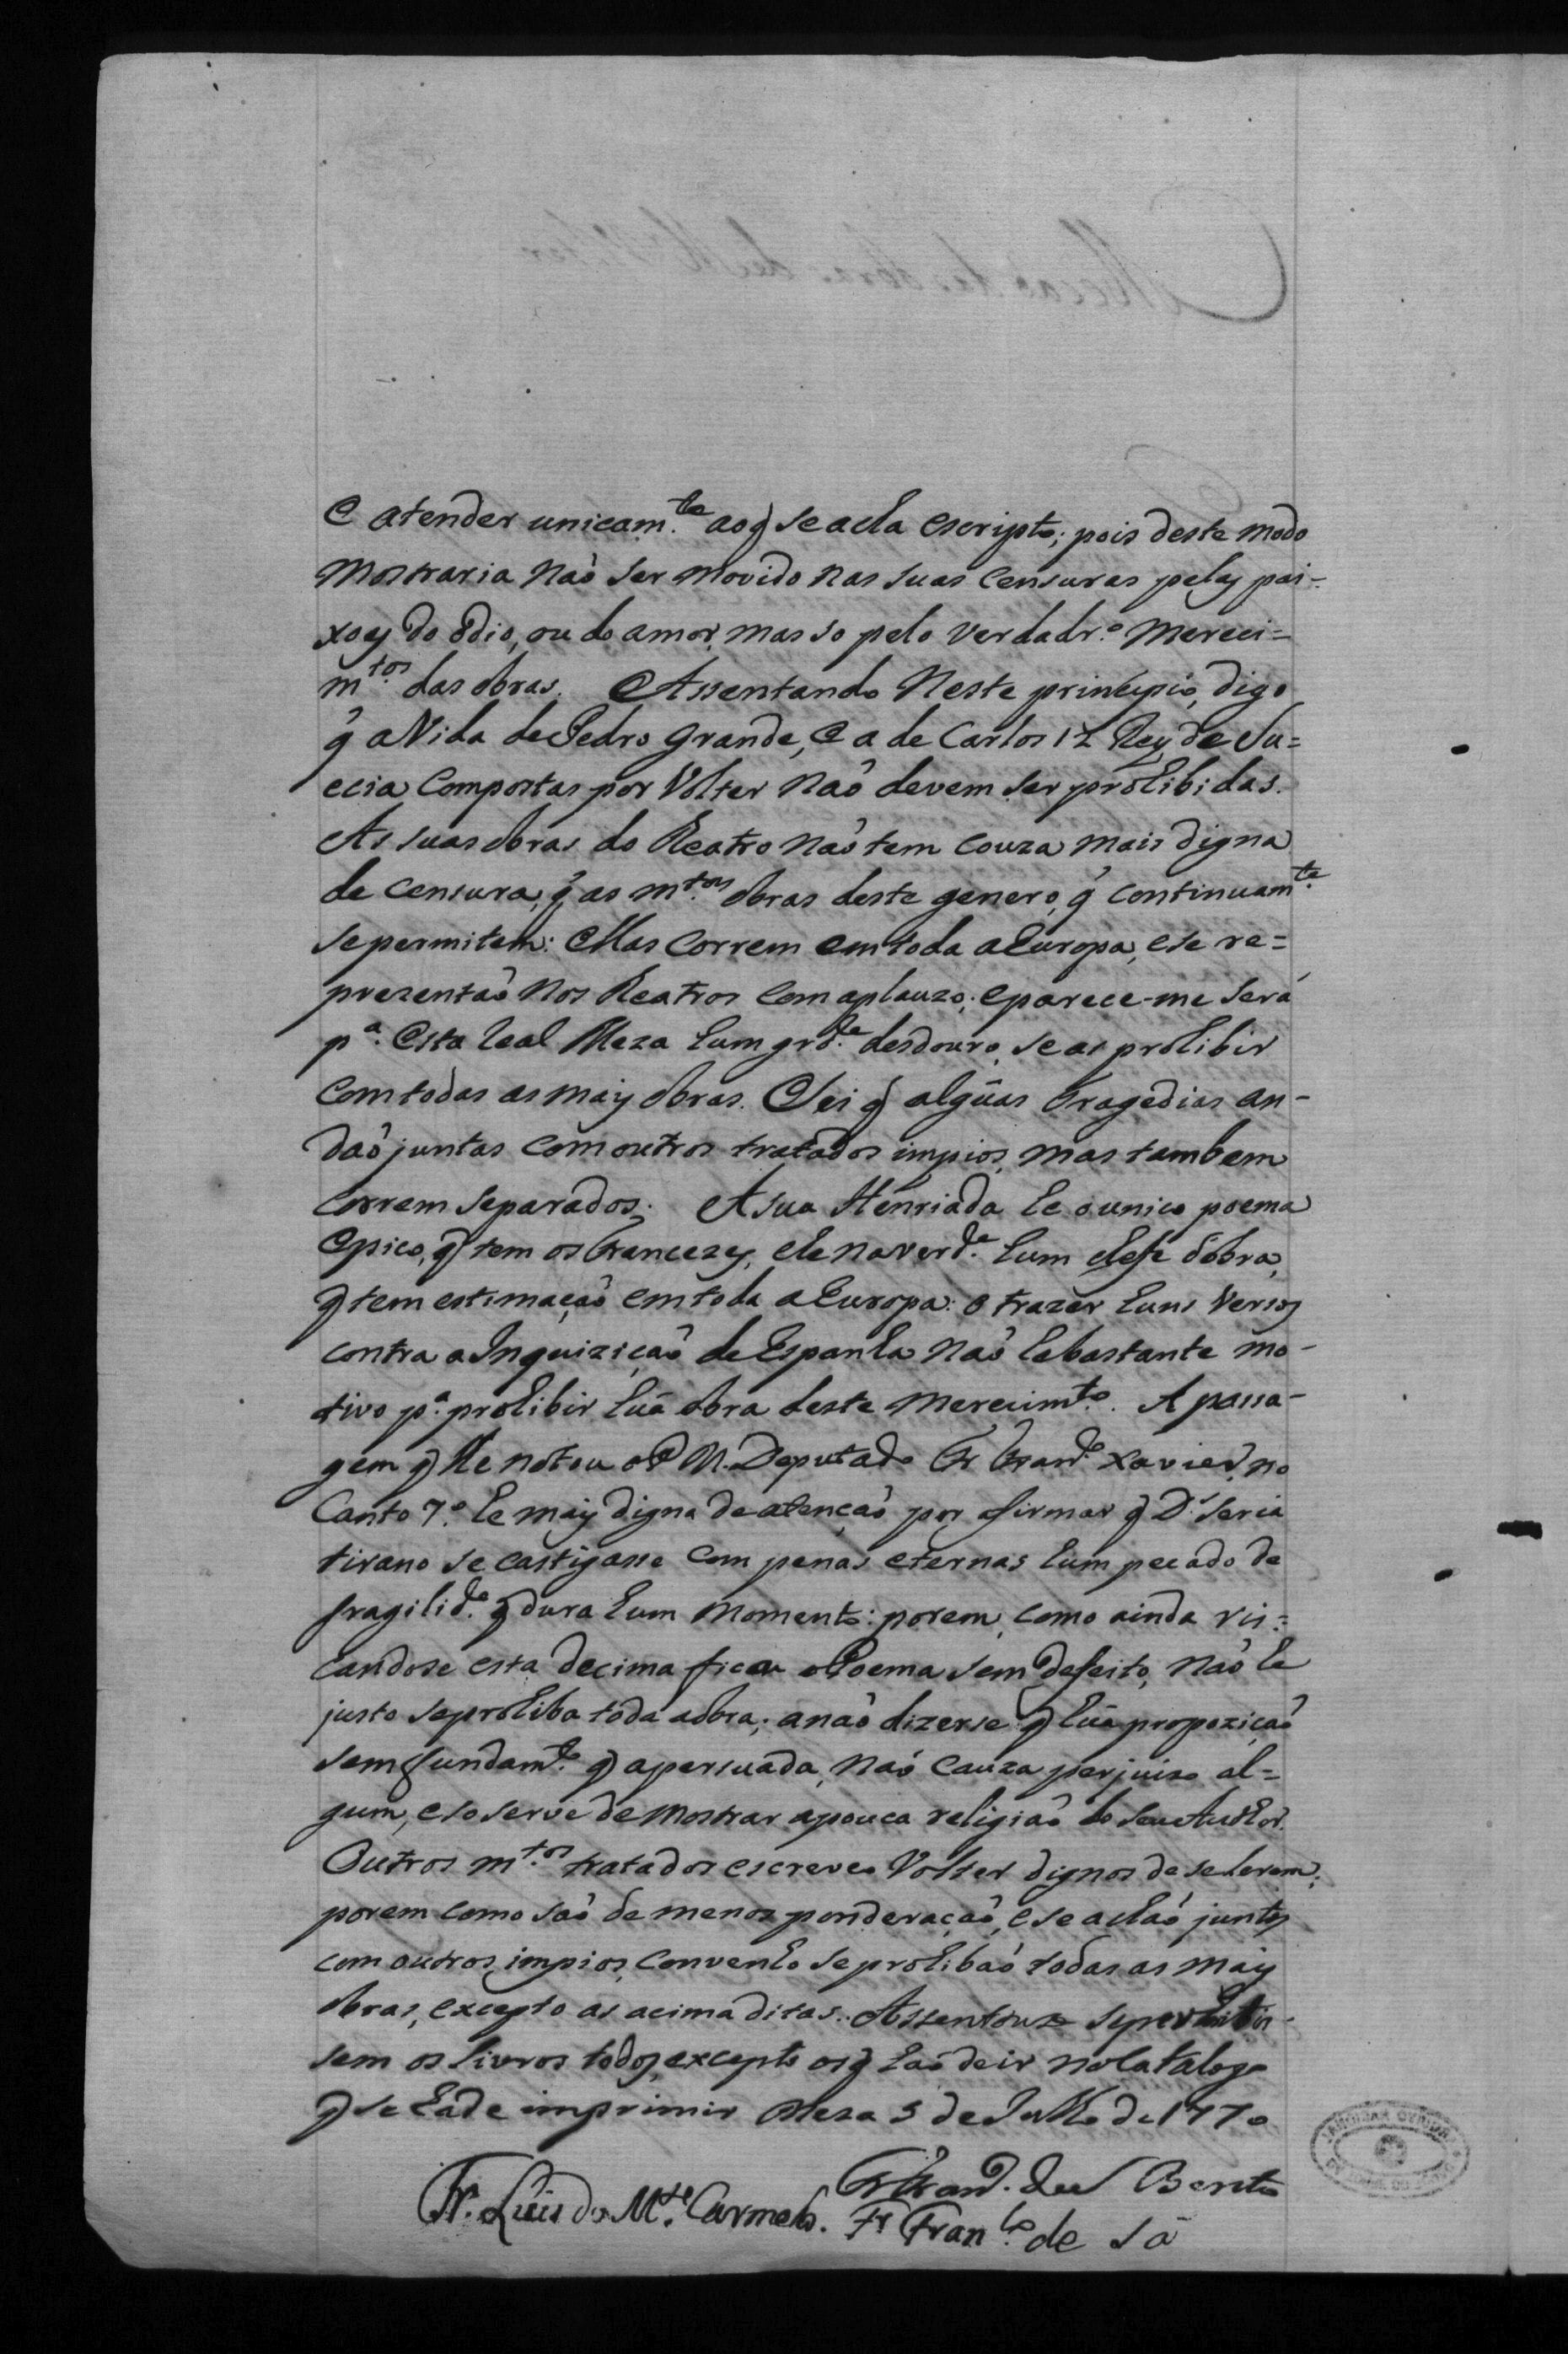 e atender unicam.te ao q̃ se acha escripto; pois deste modo
mostraria naõ ser movido nas suas censuras pelas pai-
xoes do odio, ou do amor, mas so pelo verdadr.o mereci=
m.tos das obras. Assentando neste principio, digo
q̃ a Vida de Pedro grande, e a de Carlos 12 Rey de Su=
ecia compostas por Volter naõ devem ser prohibidas.
As suas obras do Theatro naõ tem couza mais digna
de censura, q̃ as m.tas obras deste genero, q̃ continuam.te
se permitem: Ellas correm em toda a Europa, e se re=
prezentaõ nos Theatros com aplauzo; e parece-me será
p.a esta Real Meza hum grd.e desdouro, se as prohibir
com todas as mais obras. Sei q̃ algũas tragedias an-
daõ juntas com outros tratados impios, mas tambem
correm separados. A sua Henriada he o unico poema
Epico, q̃ tem os Francezes, e he na verd.e hum chefe d'obra,
q̃ tem estimaçaõ em toda a Europa: o trazer huns versos
contra a Inquiziçaõ de Espanha naõ he bastante mo-
tivo p.a prohibir hũa obra deste merecim.to. A passa-
gem q̃ lhe notou o P. M. Deputado Fr. Fran.co Xavier, no
Canto 7.o he mais digna de atençaõ por afirmar q̃ D.s seria
tirano se castigasse com penas eternas hum pecado de
fragilid.e q̃ dura hum momento: porem, como ainda ris=
candose esta decima fica o Poema sem defeito, naõ he
justo se prohiba toda a obra; a naõ dizerse q̃ hũa propoziçaõ
sem fundam.to q̃ a persuada, naõ cauza perjuizo al=
gum, e so serve de mostrar a pouca religiaõ do seu Author.
Outros m.tos tratados escreveo Volter dignos de se lerem;
porem como saõ de menor ponderaçaõ, e se achaõ juntos
com outros impios, convenho se prohibaõ todas as mais
obras, excepto as acima ditas. Assentouse se permitis-
sem os livros todos, excepto os q̃ haõ de ir no Catalogo
q̃ se ha de imprimir Meza 5 de Julho de 1770
Fr. Fran.co de S. Bento
Fr. Luis do M.te Carmelo. Fr Fran.co de Sá